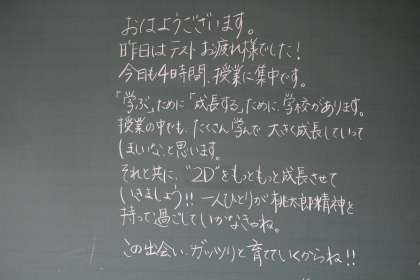 おはようございます。
昨日はテストお疲れ様でした!
今日も4時間、授業に集中です。
「学ぶ」ために「成長する」ために、学校があります。
授業の中でも、たくさん学んで大きく成長していって
ほしいな、と思います。
それと共に、"2D"をもっともっと成長させて
いきましょう!!一人ひとりが桃太郎精神を
持って過ごしていかなきゃね。
この出会い、ガッツリと育てていくからね!!